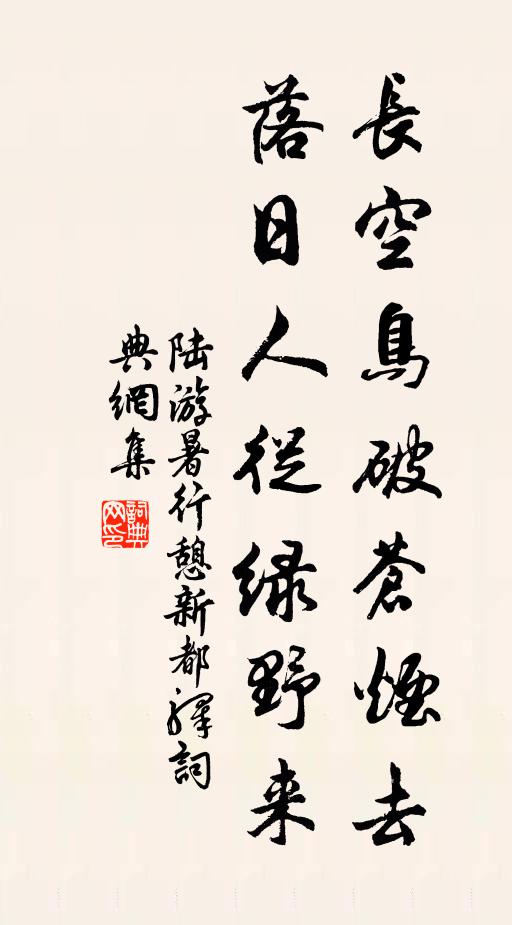 長空鳥破蒼煙去
落日人從緑野来
陆游暑行憩新都驛詞
典網集
詞典
网印